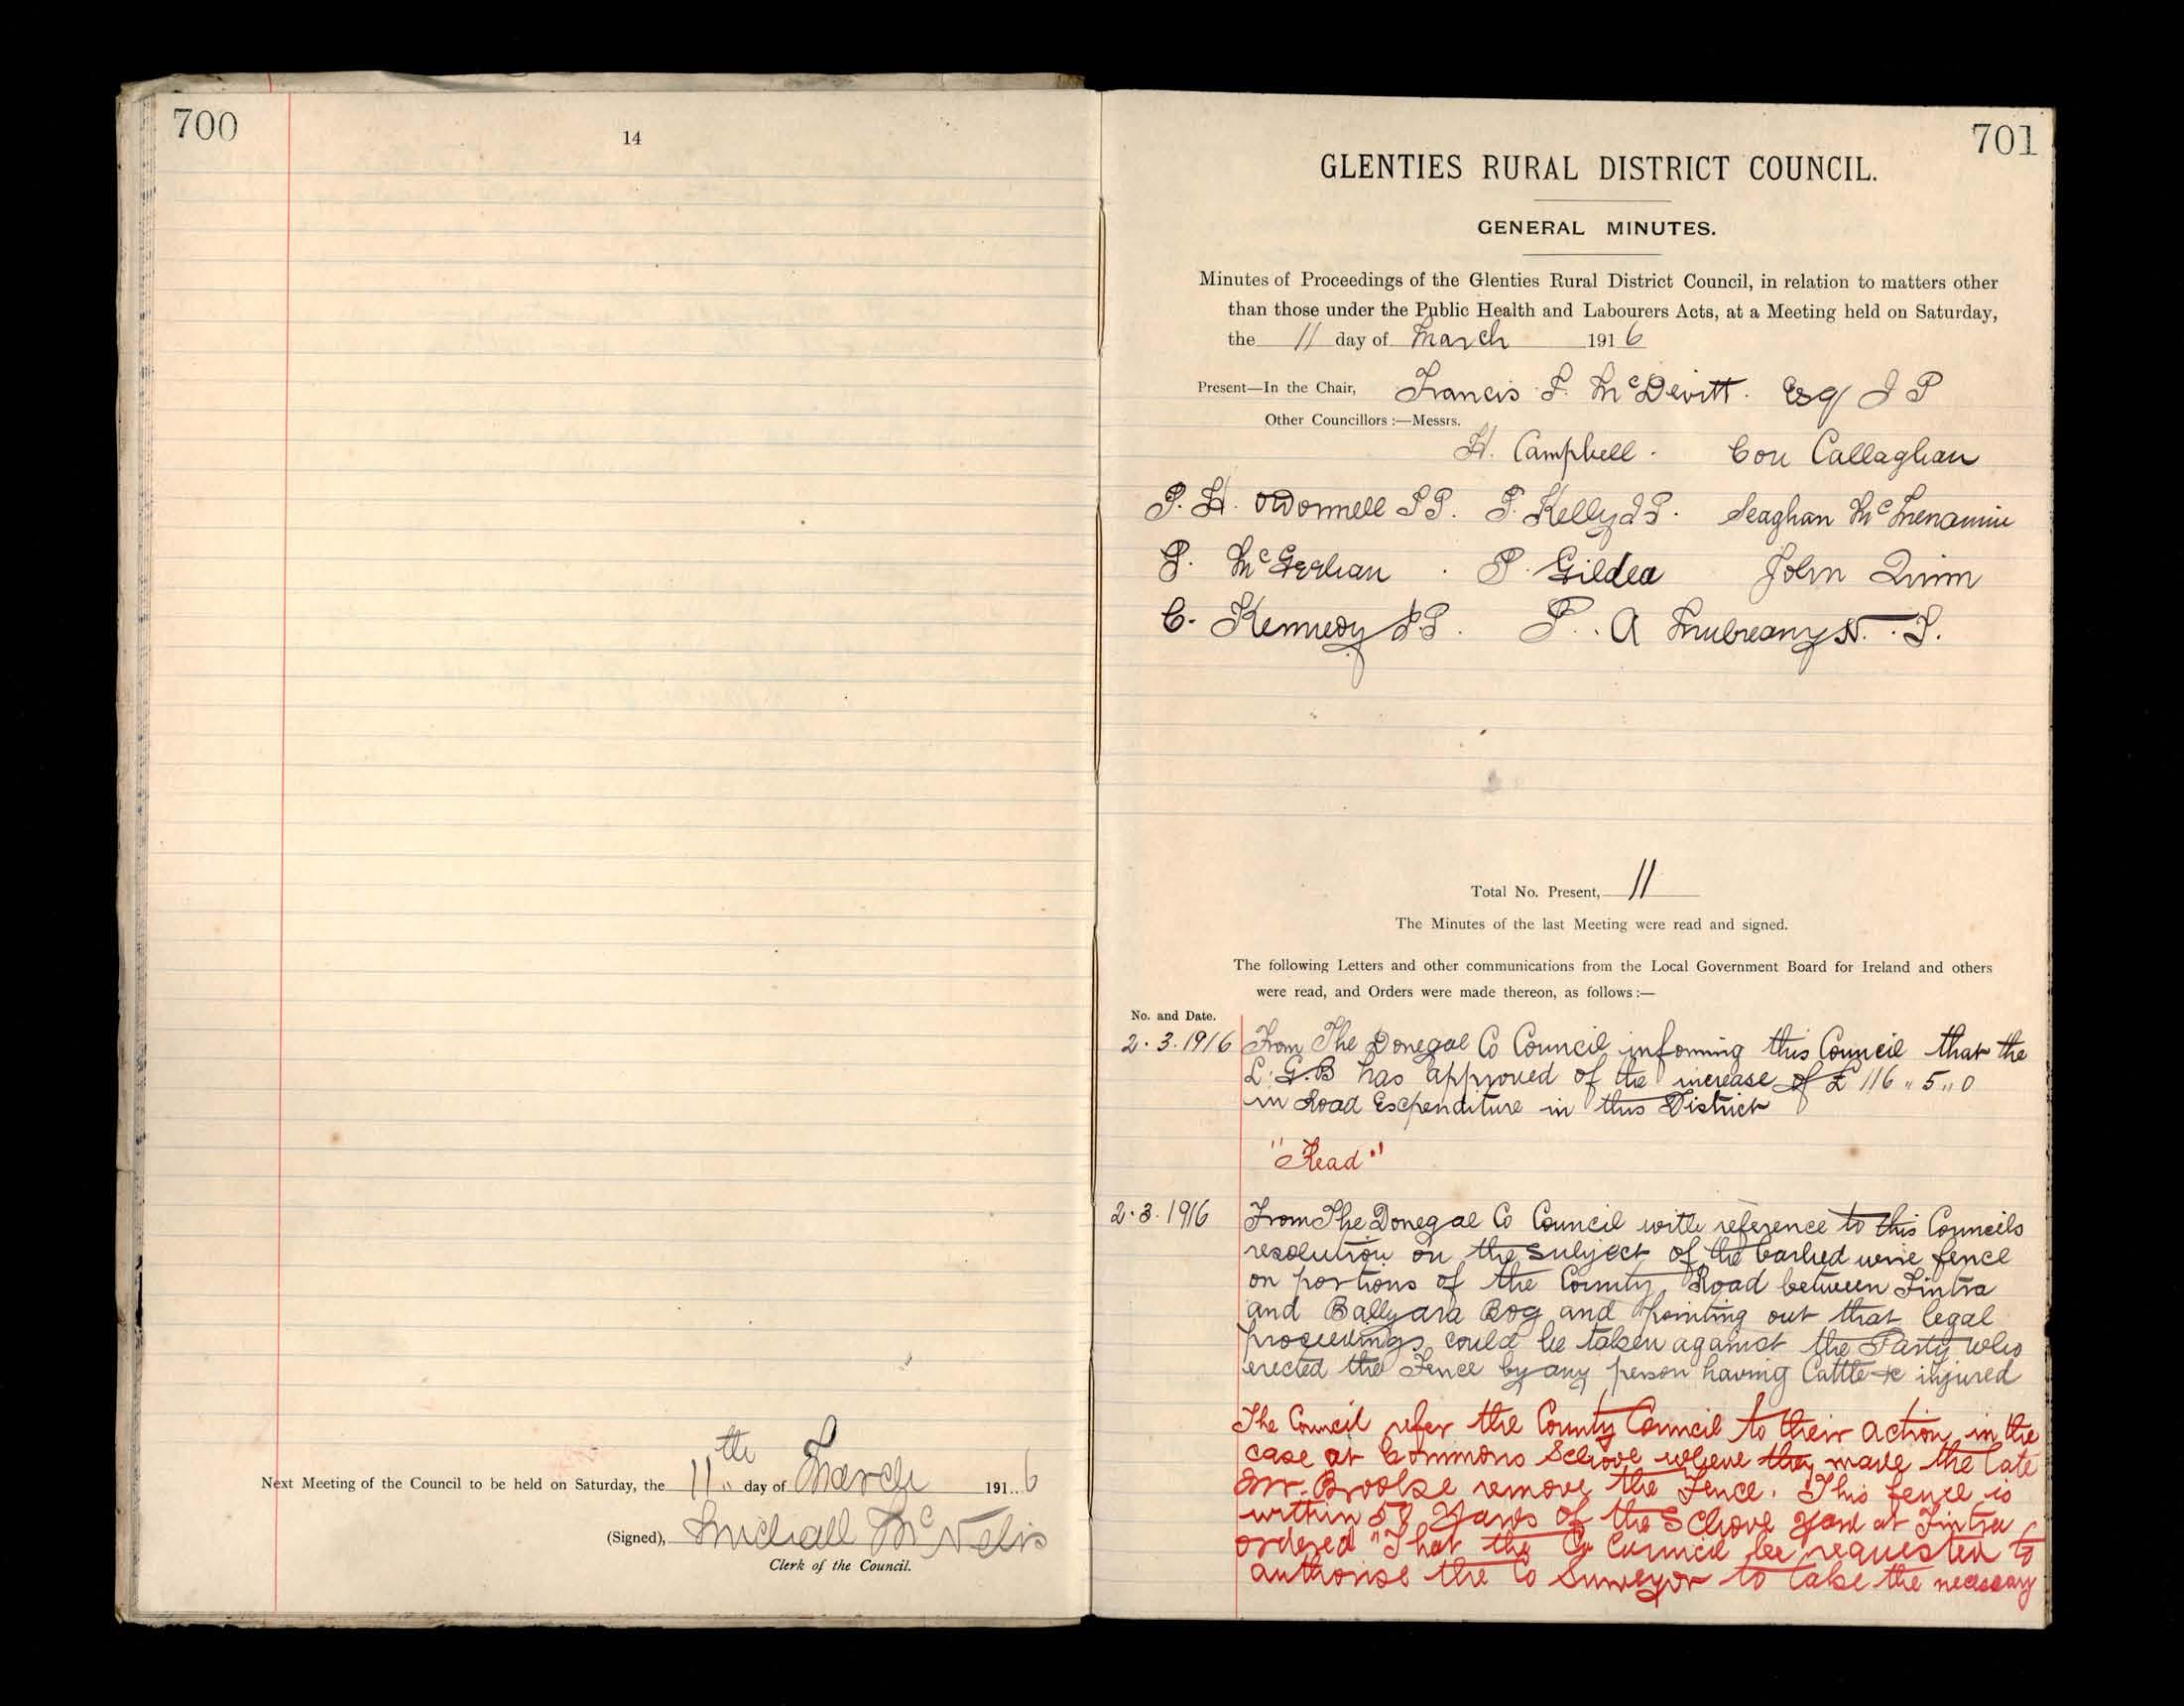 700
14
Next Meeting of the Council to be held on Saturday, the 11th day of March 1916
(Signed), Michael McNelis
Clerk of the Council.
701
GLENTIES RURAL DISTRICT COUNCIL.
GENERAL MINUTES.
Minutes of Proceedings of the Glenties Rural District Council, in relation to matters other
than those under the Public Health and Labourers Acts, at a Meeting held on Saturday,
the 11 day of March 1916
Present—In the Chair, Francis F. McDevitt. Esq J P
Other Councillors:—Messrs.
H. Campbell. Con Callaghan
P. H. O'Donnell J P. P. Kelly J P. Seaghan McMenamin
P. McGeehan. P. Gildea John Quinn
C. Kennedy J P. P. A Mulreany N. T.
Total No. Present, 11
The Minutes of the last Meeting were read and signed.
The following Letters and other communications from the Local Government Board for Ireland and others
were read, and Orders were made thereon, as follows:—
No. and Date.
2.3.1916 From The Donegal Co Council informing this Council that the
L.G.B has approved of the increase of £116 " 5 " 0
in Road Expenditure in this District
"Read"
2.3.1916 From The Donegal Co Council with reference to this Councils
resolution on the subject of the barbed wire fence
on portions of the County Road between Fintra
and Ballyara Bog and pointing out that legal
proceedings could be taken against the Party who
erected the Fence by any person having Cattle &c injured
The Council refer the County Council to their action in the
case at Commons School where they made the late
Mr. Brooke remove the Fence. This fence is
within 50 Yards of the School Yard at Fintra
ordered "That the Co Council be requested to
authorise the Co Surveyor to take the necessary